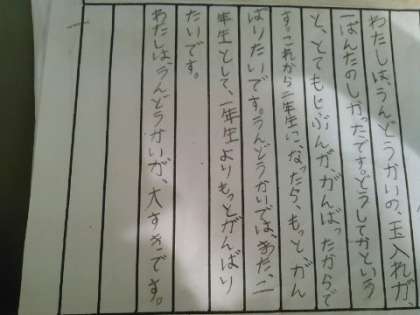 わたしは、うんどうかいの、玉入れが
一ばんたのしかったです。どうしてかという
と、とてもじぶんが、がんばったからで
す。これから二年生に、なったら、もっと、がん
ばりたいです。うんどうかいでは、また、二
年生として、一年生よりもっとがんばり
たいです。
わたしは、うんどうかいが、大すきです。